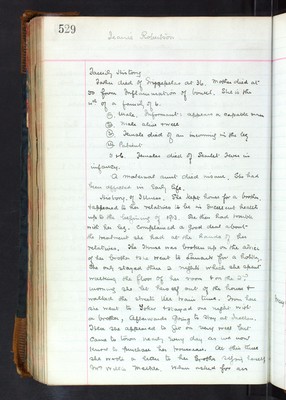 529
Jeannie Robertson
Family History
Father died of Erysipelas at 36. Mother died at
30 from Inflammation of bowel. She is the
4th of a family of 6.
(1) Male. Informant: appears a capable man
(2) Male alive & well
(3) Female died of an in the leg
(4) Patient
5 & 6. Females died of Scarlet Fever in
infancy.
A maternal aunt died insane. She had
been in early life.
History of Illness. She kept house for a brother,
& appeared to her relatives to be in her usual health
up to the beginning of 1913. She then had trouble
with her leg. Complained a good deal about
the treatment she had at the hands of her
relatives. The house was broken up on the advice
of her brother who went to Lanark for a holiday,
She only stayed there 2 nights which she spent
walking the floor of her room & on the 2nd
morning she let herself out of the house &
walked the street like many times. From here
she went to & stayed one night with
a brother, afterwards going to stay at
Here she appeared to get on very well but
came to town nearly every day as she went
to purchase her trousseau. At this time
she wrote a letter to her brother signing herself
Mrs. When asked for an